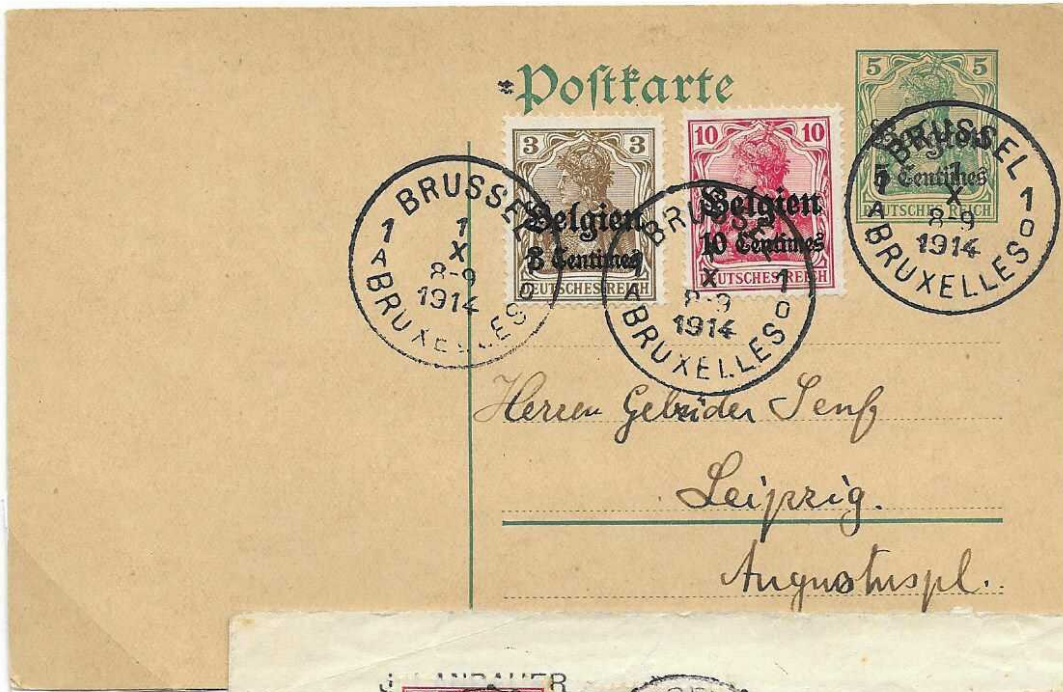 *Postkarte
5
Belgien
5 Centimes
DEUTSCHES REICH
3 3
Belgien
3 Centimes
DEUTSCHES REICH
10 10
Belgien
10 Centimes
DEUTSCHES REICH
BRUSSEL
1 1
X
8-9
1914
A BRUXELLES
BRUSSEL
1
X
8-9
1914
A BRUXELLES
BRUSSEL
1 1
X
8-9
1914
A BRUXELLES
Herren Gebrüder Senf
Leipzig.
Augustuspl.